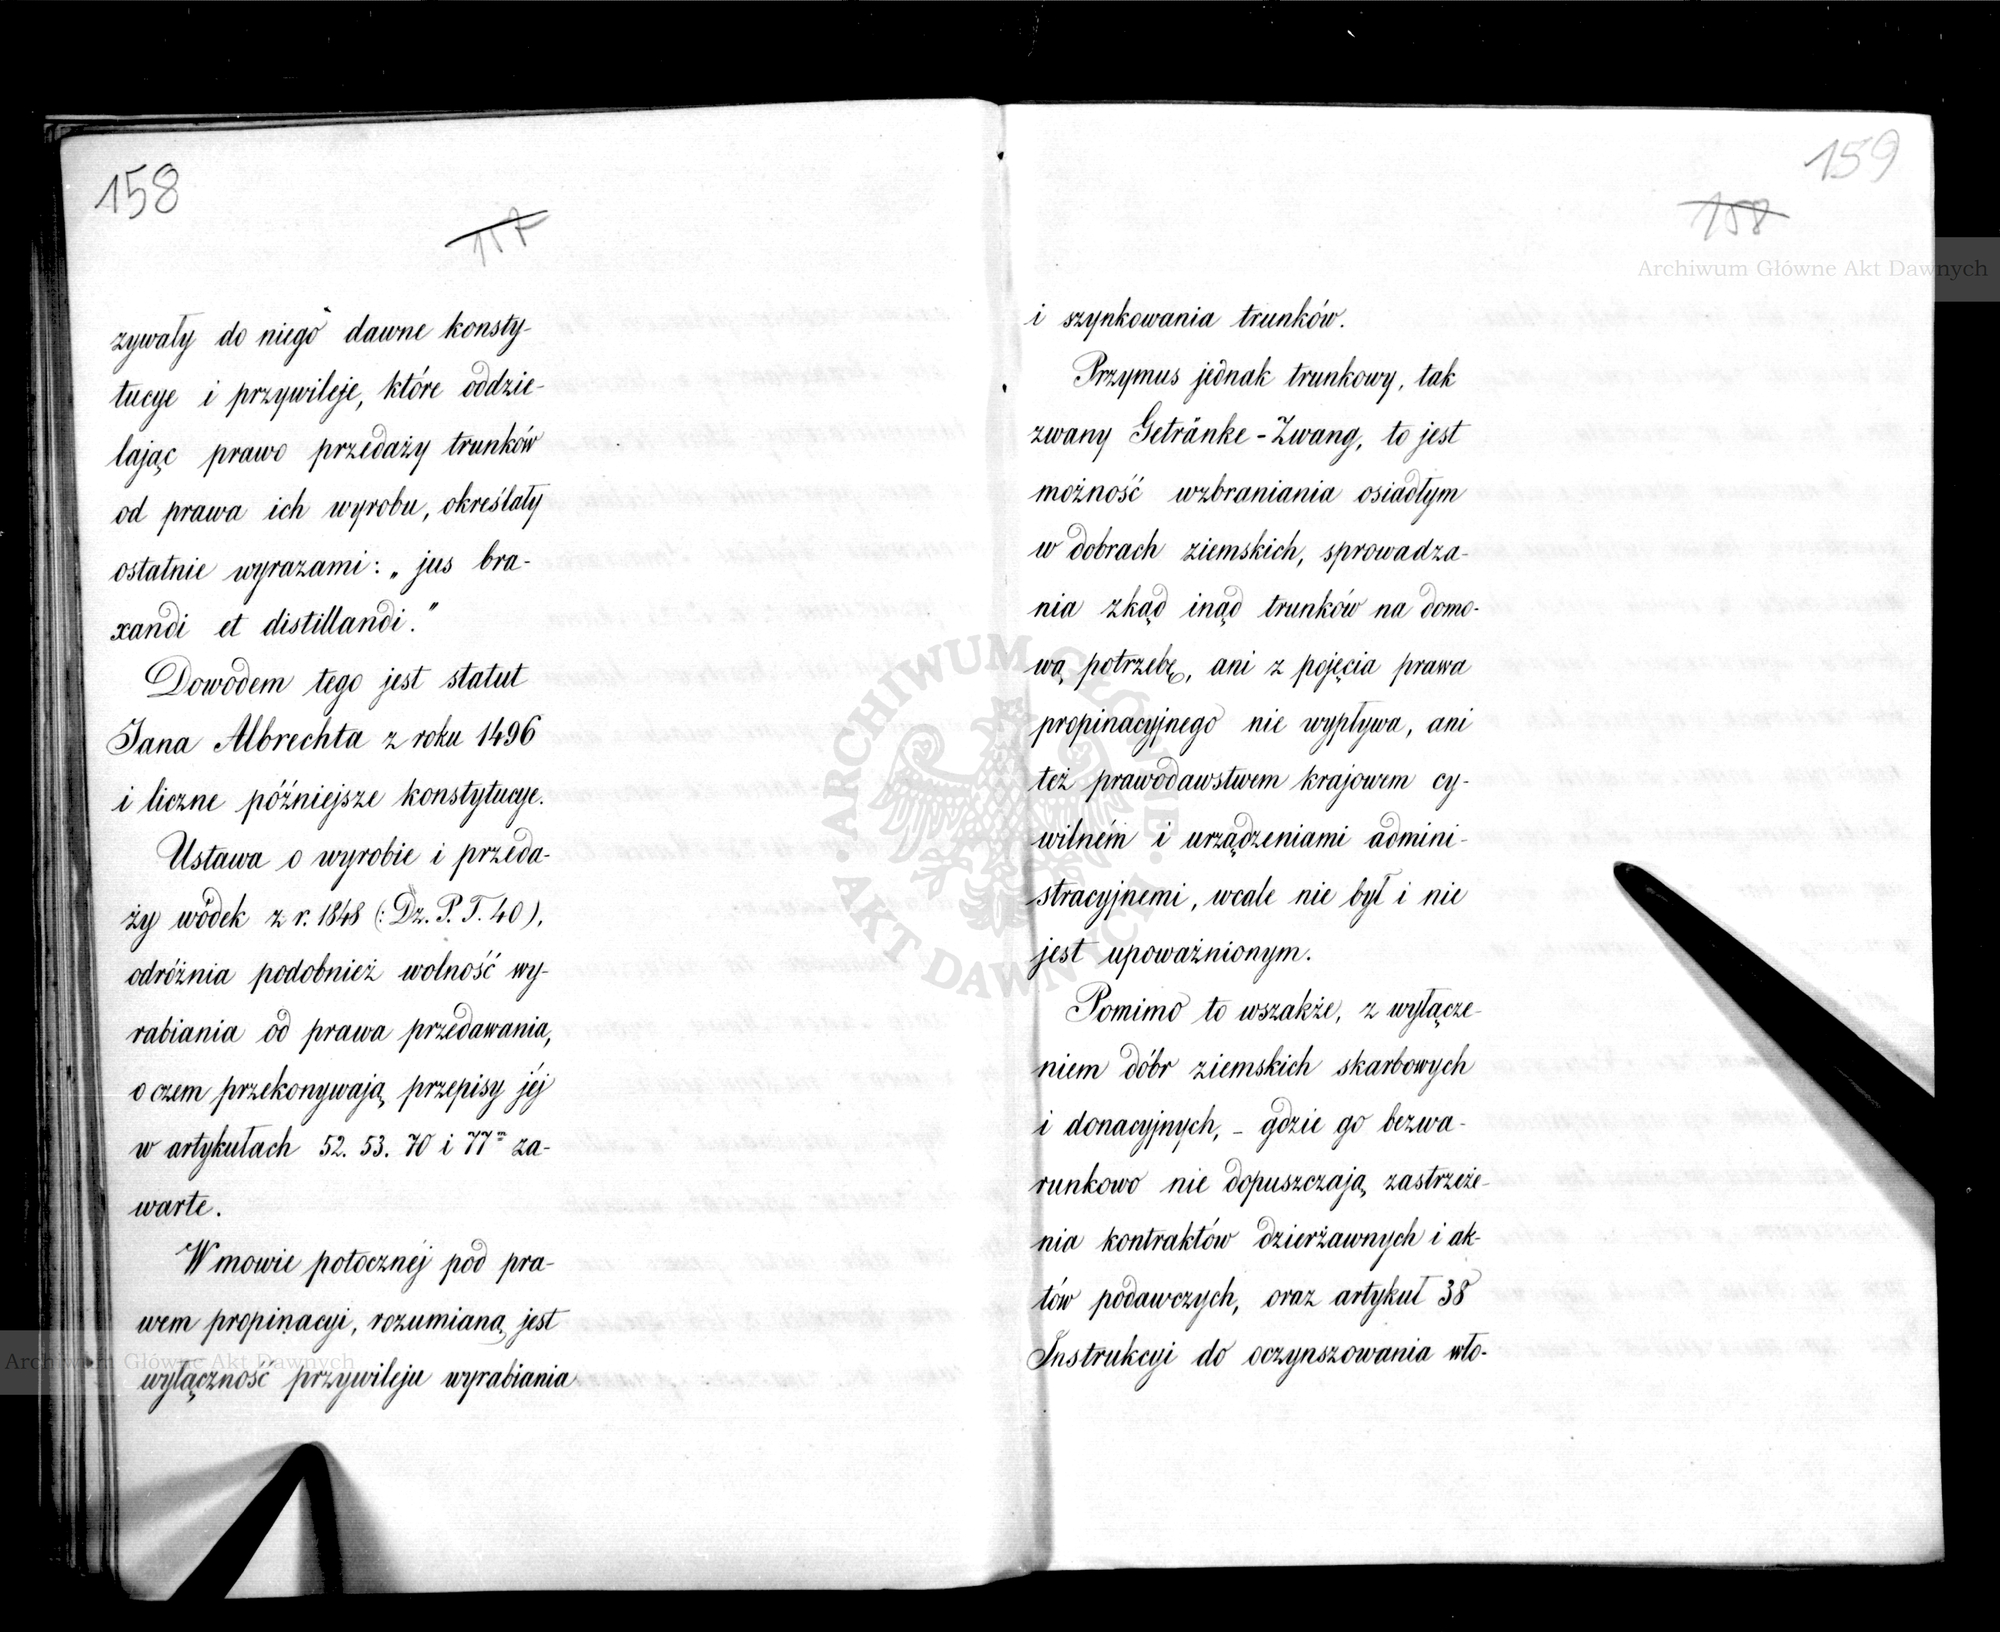 158
157
zywały do niego dawne konsty-
tucye i przywileje, które oddzie-
lając prawo przedaży trunków
od prawa ich wyrobu, określały
ostatnie wyrazami: „jus bra-
xandi et distillandi."
Dowodem tego jest statut
Jana Albrechta z roku 1496
i liczne późniejsze konstytucye.
Ustawa o wyrobie i przeda-
ży wódek z r. 1848 (: Dz. P. T. 40),
odróżnia podobnież wolność wy-
rabiania od prawa przedawania,
o czem przekonywają przepisy jéj
w artykułach 52. 53. 70 i 77m za-
warte.
W mowie potocznéj pod pra-
wem propinacyi, rozumianą jest
wyłączność przywileju wyrabiania
159
158
i szynkowania trunków.
Przymus jednak trunkowy, tak
zwany Getränke-Zwang, to jest
możność wzbraniania osiadłym
w dobrach ziemskich, sprowadza-
nia zkąd inąd trunków na domo-
wą potrzebę, ani z pojęcia prawa
propinacyjnego nie wypływa, ani
też prawodawstwem krajowem cy-
wilném i urządzeniami admini-
stracyjnemi, wcale nie był i nie
jest upoważnionym.
Pomimo to wszakże, z wyłącze-
niem dóbr ziemskich skarbowych
i donacyjnych, – gdzie go bezwa-
runkowo nie dopuszczają zastrzeże-
nia kontraktów dzierżawnych i ak-
tów podawczych, oraz artykuł 38
Instrukcyi do oczynszowania wło-
Archiwum Główne Akt Dawnych
ARCHIWUM GŁÓWNE · AKT DAWNYCH ·
Archiwum Główne Akt Dawnych